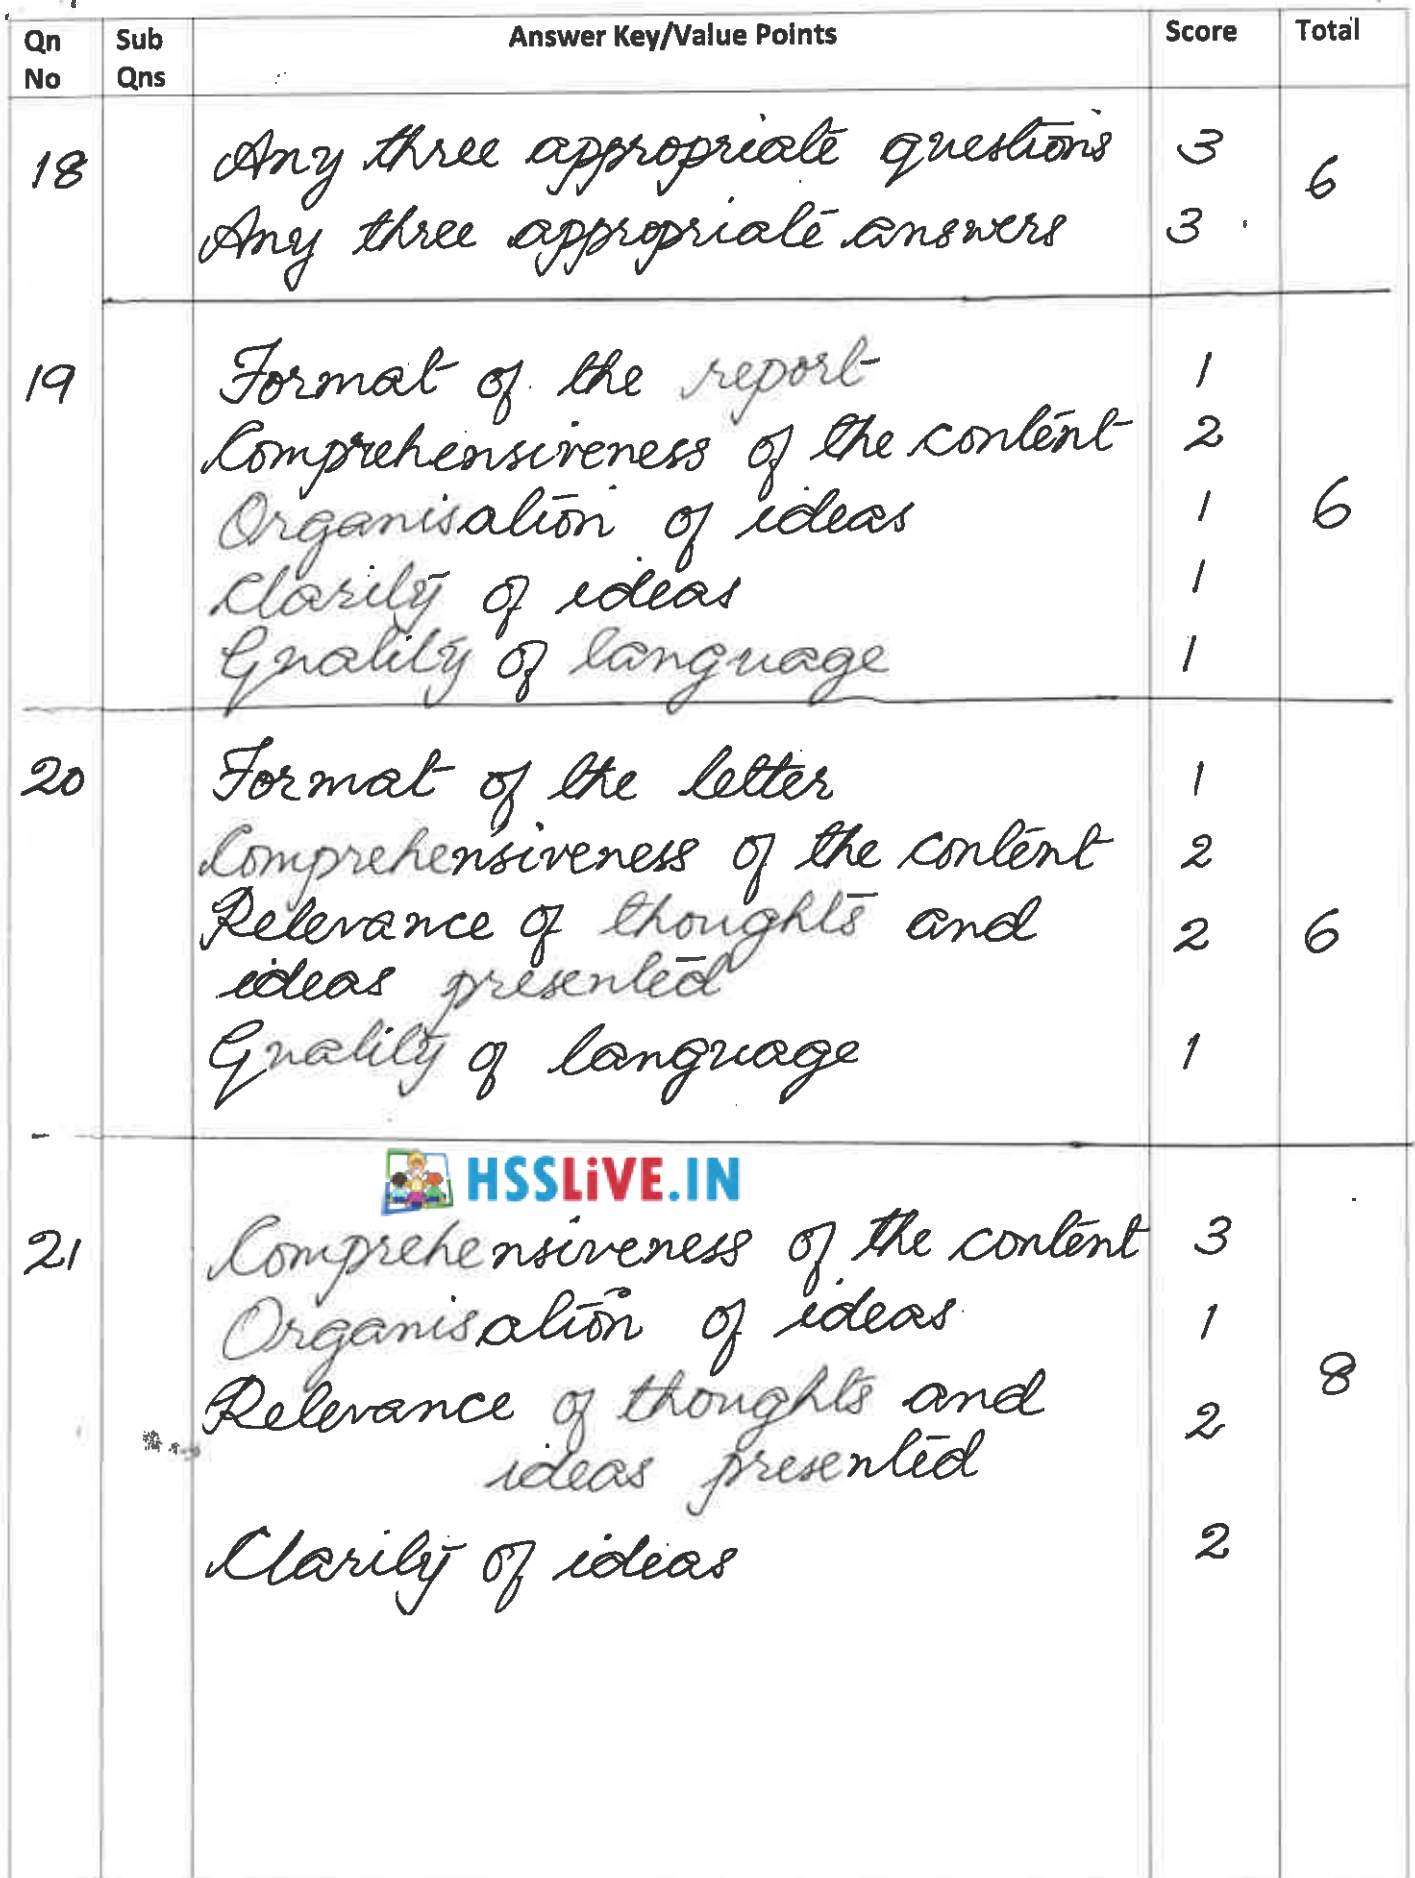 Qn No Sub Qns Answer Key/Value Points Score Total
18 Any three appropriate questions 3 6
Any three appropriate answers 3
19 Format of the report 1
Comprehensiveness of the content 2
Organisation of ideas 1 6
Clarity of ideas 1
Quality of language 1
20 Format of the letter 1
Comprehensiveness of the content 2
Relevance of thoughts and 2 6
ideas presented
Quality of language 1
HSSLiVE.IN
21 Comprehensiveness of the content 3
Organisation of ideas 1
Relevance of thoughts and 2 8
ideas presented
Clarity of ideas 2